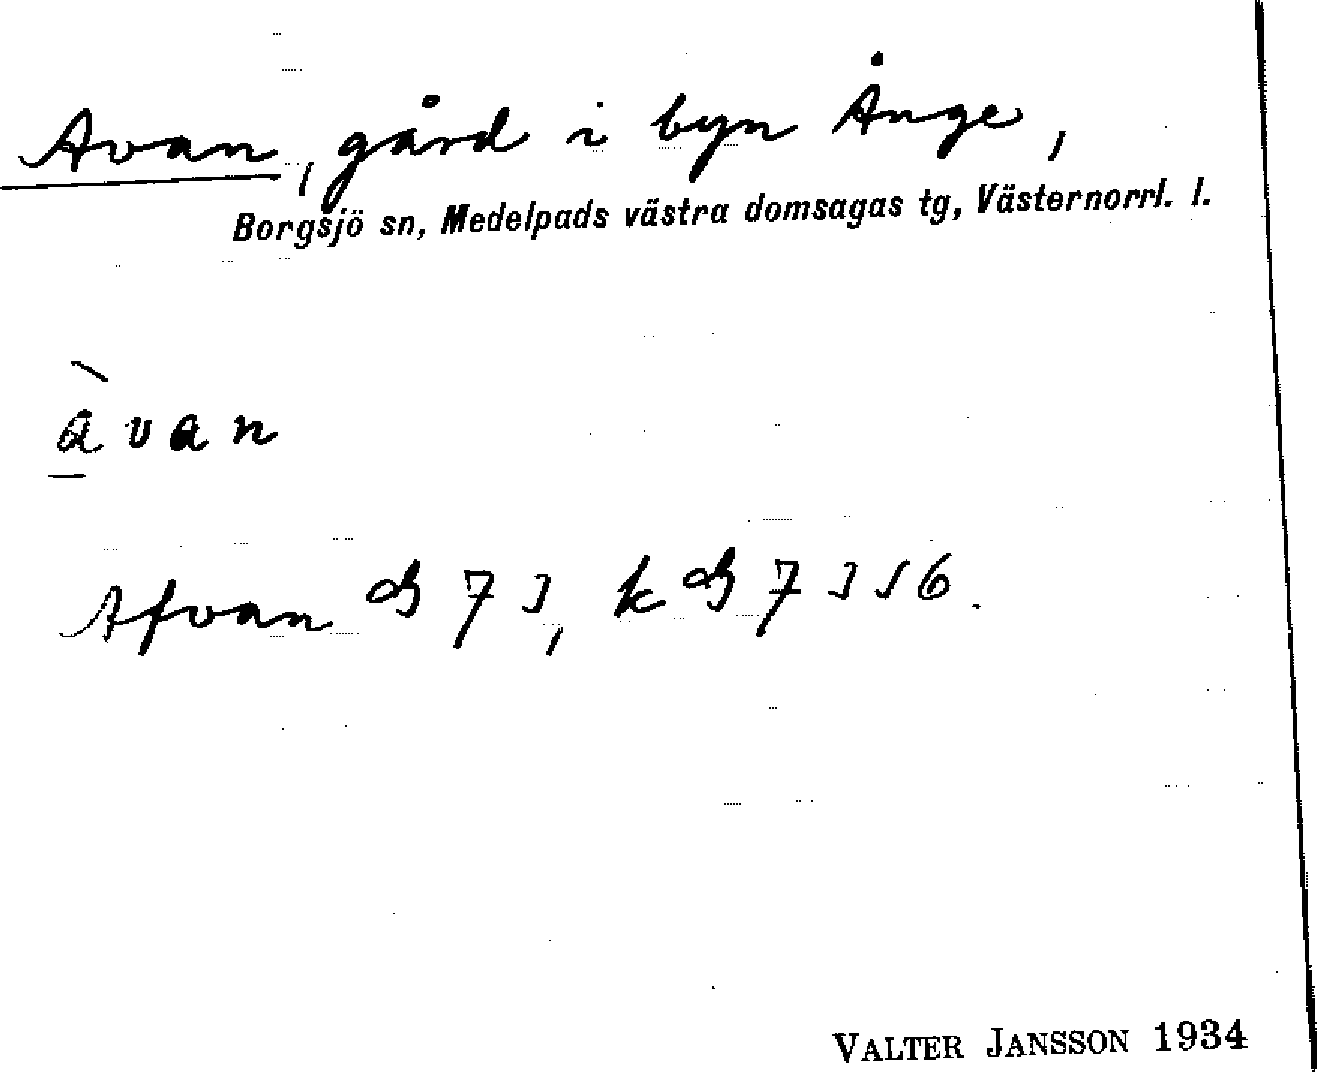 Avan, gård i byn Ånge,
Borgsjö sn, Medelpads västra domsagas tg, Västernorrl. l.
àvan
Afvan GS 73, k GS 7356.
VALTER JANSSON 1934